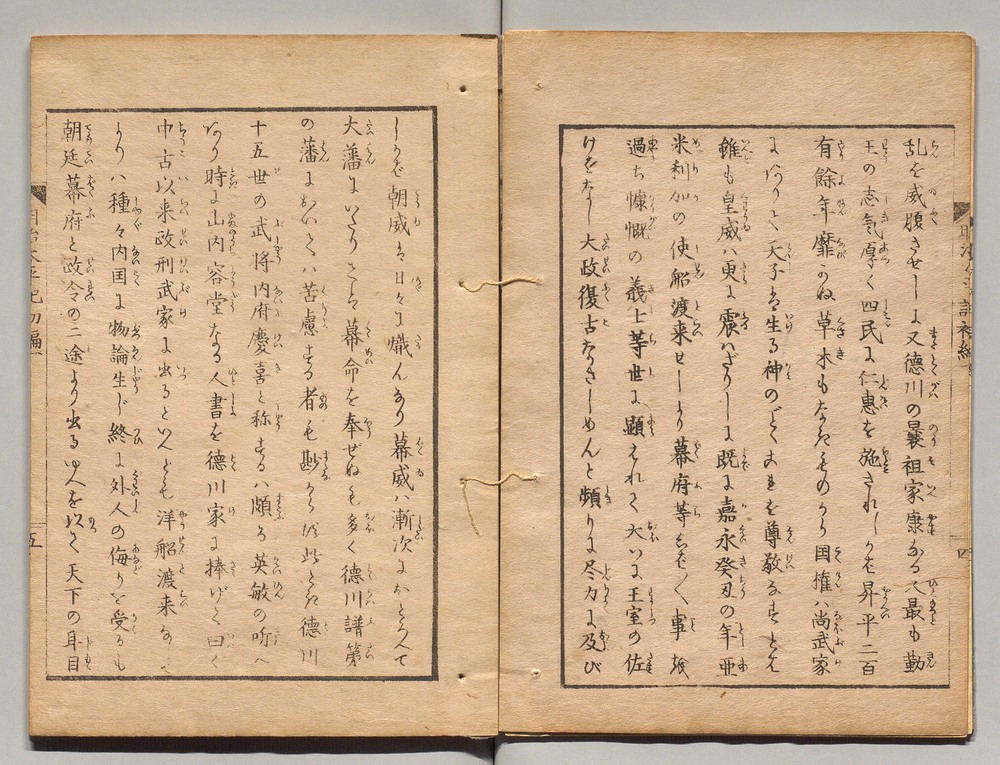 乱を威腹させしに又徳川の曩祖家康なる人最も勤
王の志気厚く四民に仁恵を施されしかば昇平二百
有餘年靡かぬ草木もなきものから国権ハ尚武家
にありて天子を生る神のごとおもを尊敬なすとは
雖も皇威ハ更に震ハざりしに既に嘉永癸丑の年亜
米利加の使船渡来せしより幕府等しなく事を
過ち慷慨の義士等世に顕ハれて大いに王室の佐
けをなし大政復古なさしめんと頻りに尽力に及び
しかば朝威は日々に熾んなり幕威ハ漸次におとろへて
大藩にいたりては幕命を奉ぜぬも多く徳川譜第
の藩においてハ苦慮する者も尠からず此とき徳川
十五世の武将内府慶喜と称するハ頗る英敏の聞へ
あり時に山内容堂なる人書を徳川家に捧げて曰く
中古以来政刑武家に出るといへども洋船渡来なして
よりハ種々内国に物論生じ終に外人の侮りを受るも
朝廷幕府と政令の二途より出るゆへを以て天下の耳目
明治太平記初編
五
四